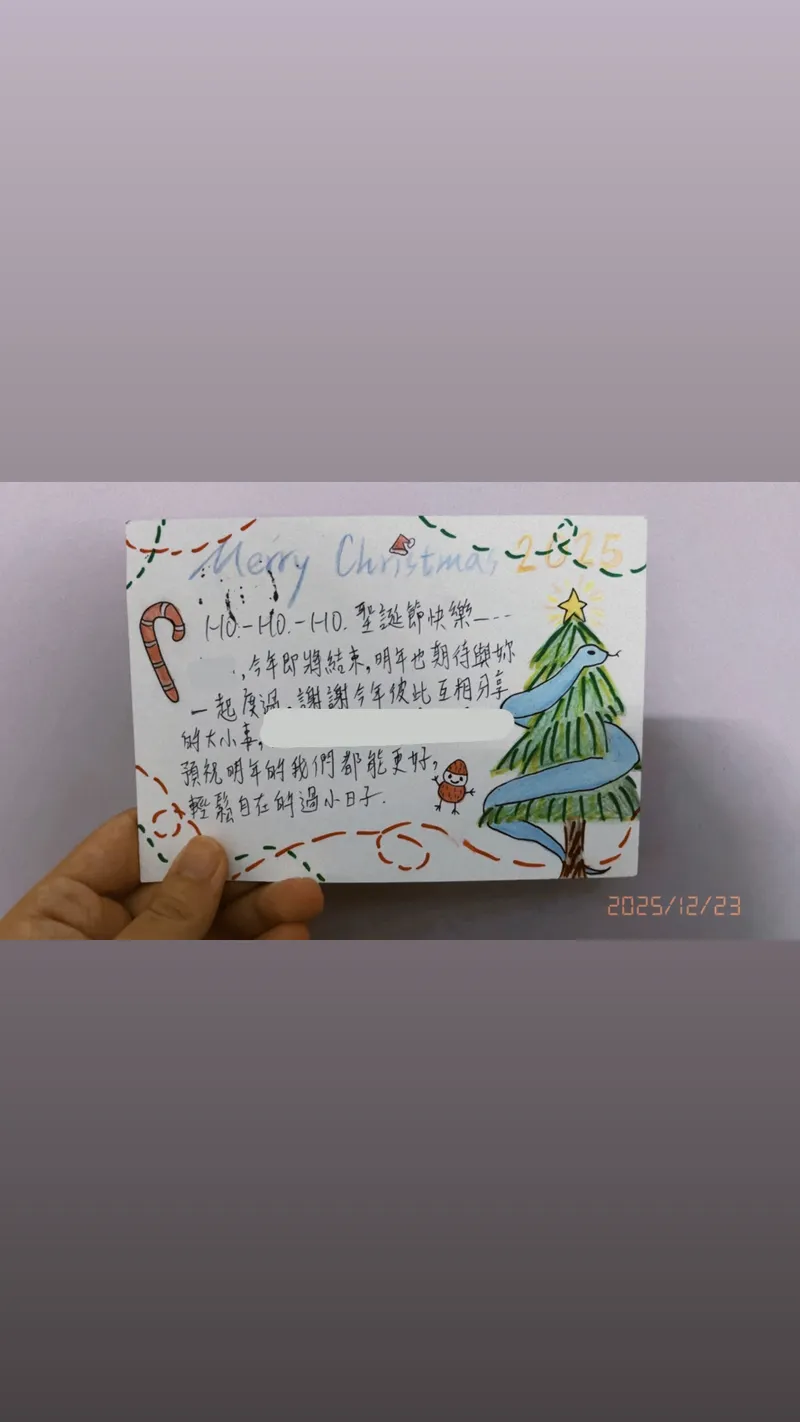 Merry Christmas 2025
HO.-HO.-HO. 聖誕節快樂----
,今年即將結束,明年也期待與妳
一起度過,謝謝今年彼此互相分享
的大小事,
預祝明年的我們都能更好,
輕鬆自在的過小日子.
2025/12/23